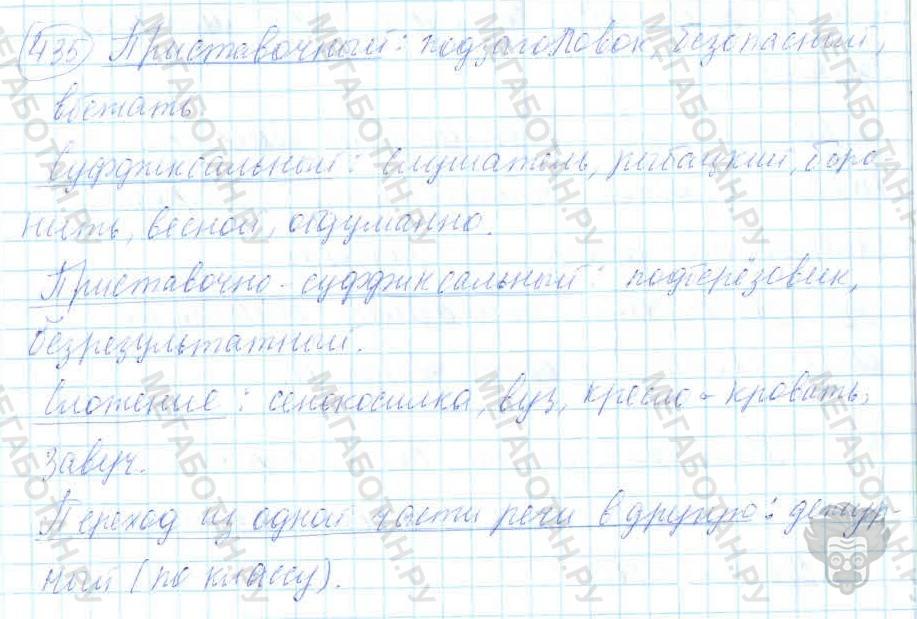 435 Приставочный: подзаголовок, безопасный,
вбежать.
Суффиксальный: слушатель, рыбацкий, боро-
нить, весной, обдуманно.
Приставочно-суффиксальный: подберёзовик,
безрезультатный.
Сложение: сенокосилка, вуз, кресло-кровать,
завуч.
Переход из одной части речи в другую: дежур-
ный (по классу).
МЕГАБОТАН.РУ